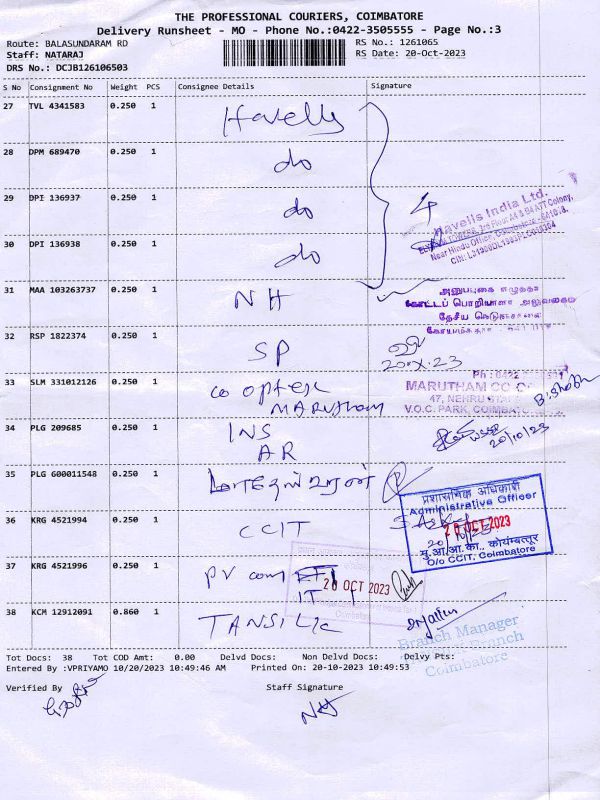 THE PROFESSIONAL COURIERS, COIMBATORE
Delivery Runsheet - MO - Phone No.:0422-3505555 - Page No.:3
Route: BALASUNDARAM RD RS No.: 1261065
Staff: NATARAJ RS Date: 20-Oct-2023
DRS No.: DCJB126106503
S No Consignment No Weight PCS Consignee Details Signature
27 TVL 4341583 0.250 1 Havells
28 DPM 689470 0.250 1 do
29 DPI 136937 0.250 1 do
Havells India Ltd.
30 DPI 136938 0.250 1 do
31 MAA 103263737 0.250 1 NH
32 RSP 1822374 0.250 1 SP
33 SLM 331012126 0.250 1 Co optex
MARUTHAM
MARUTHAM CO
47, NEHRU
V.O.C. PARK, COIMBAT
34 PLG 209685 0.250 1 INS
AR
20/10/23
35 PLG 600011548 0.250 1
प्रशासनिक अधिकारी
Administrative Officer
20 OCT 2023
मु.आ.आ.का., कोयंबत्तूर
O/o CCIT, Coimbatore
36 KRG 4521994 0.250 1 CCIT
37 KRG 4521996 0.250 1 PV com
IT
20 OCT 2023
38 KCM 12912091 0.860 1 TANSI LIC
Branch Manager
Branch
Coimbatore
Tot Docs: 38 Tot COD Amt: 0.00 Delvd Docs: Non Delvd Docs: Delvy Pts:
Entered By :VPRIYAMO 10/20/2023 10:49:46 AM Printed On: 20-10-2023 10:49:53
Verified By Staff Signature